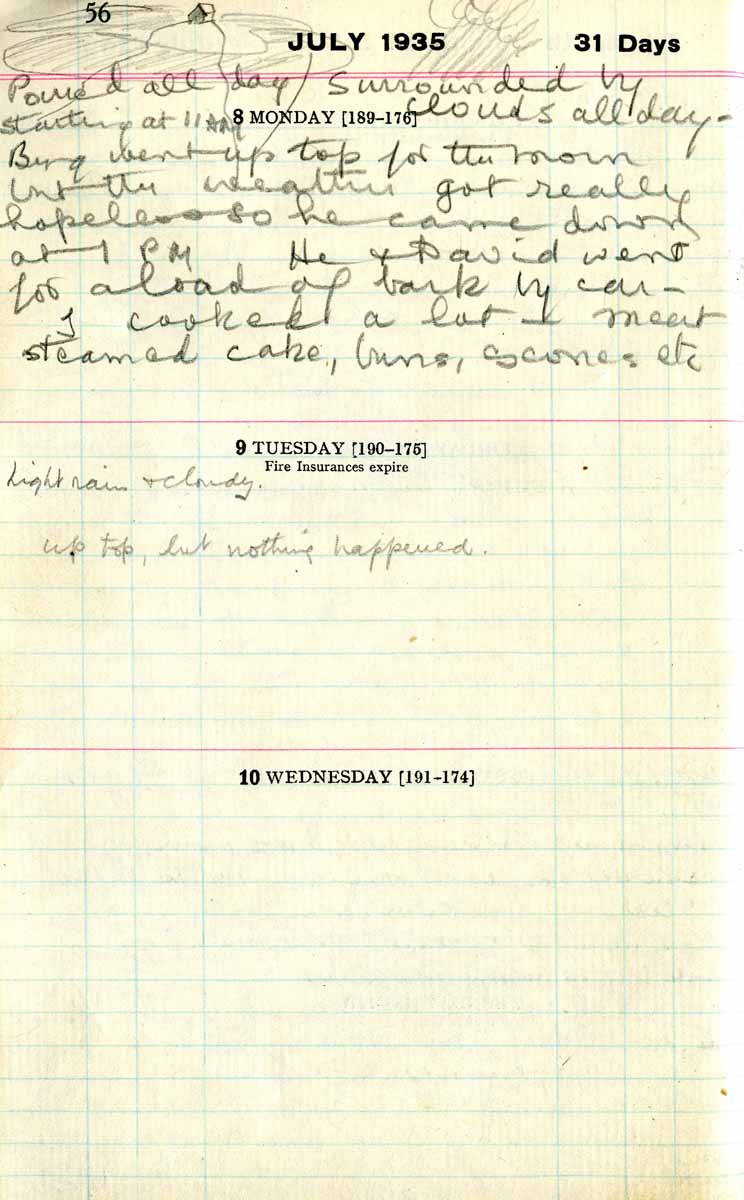 56
JULY 1935 31 Days
Poured all day Surrounded by
starting at 11 AM clouds all day -
8 MONDAY [189-176]
went up top for the morn
but the weather got really
hopeless so he came down
at 1 PM He & David went
for a load of bark by car -
I cooked a lot - meat
steamed cake, buns, scones etc
9 TUESDAY [190-175]
Fire Insurances expire
Light rain & cloudy.
up top, but nothing happened.
10 WEDNESDAY [191-174]